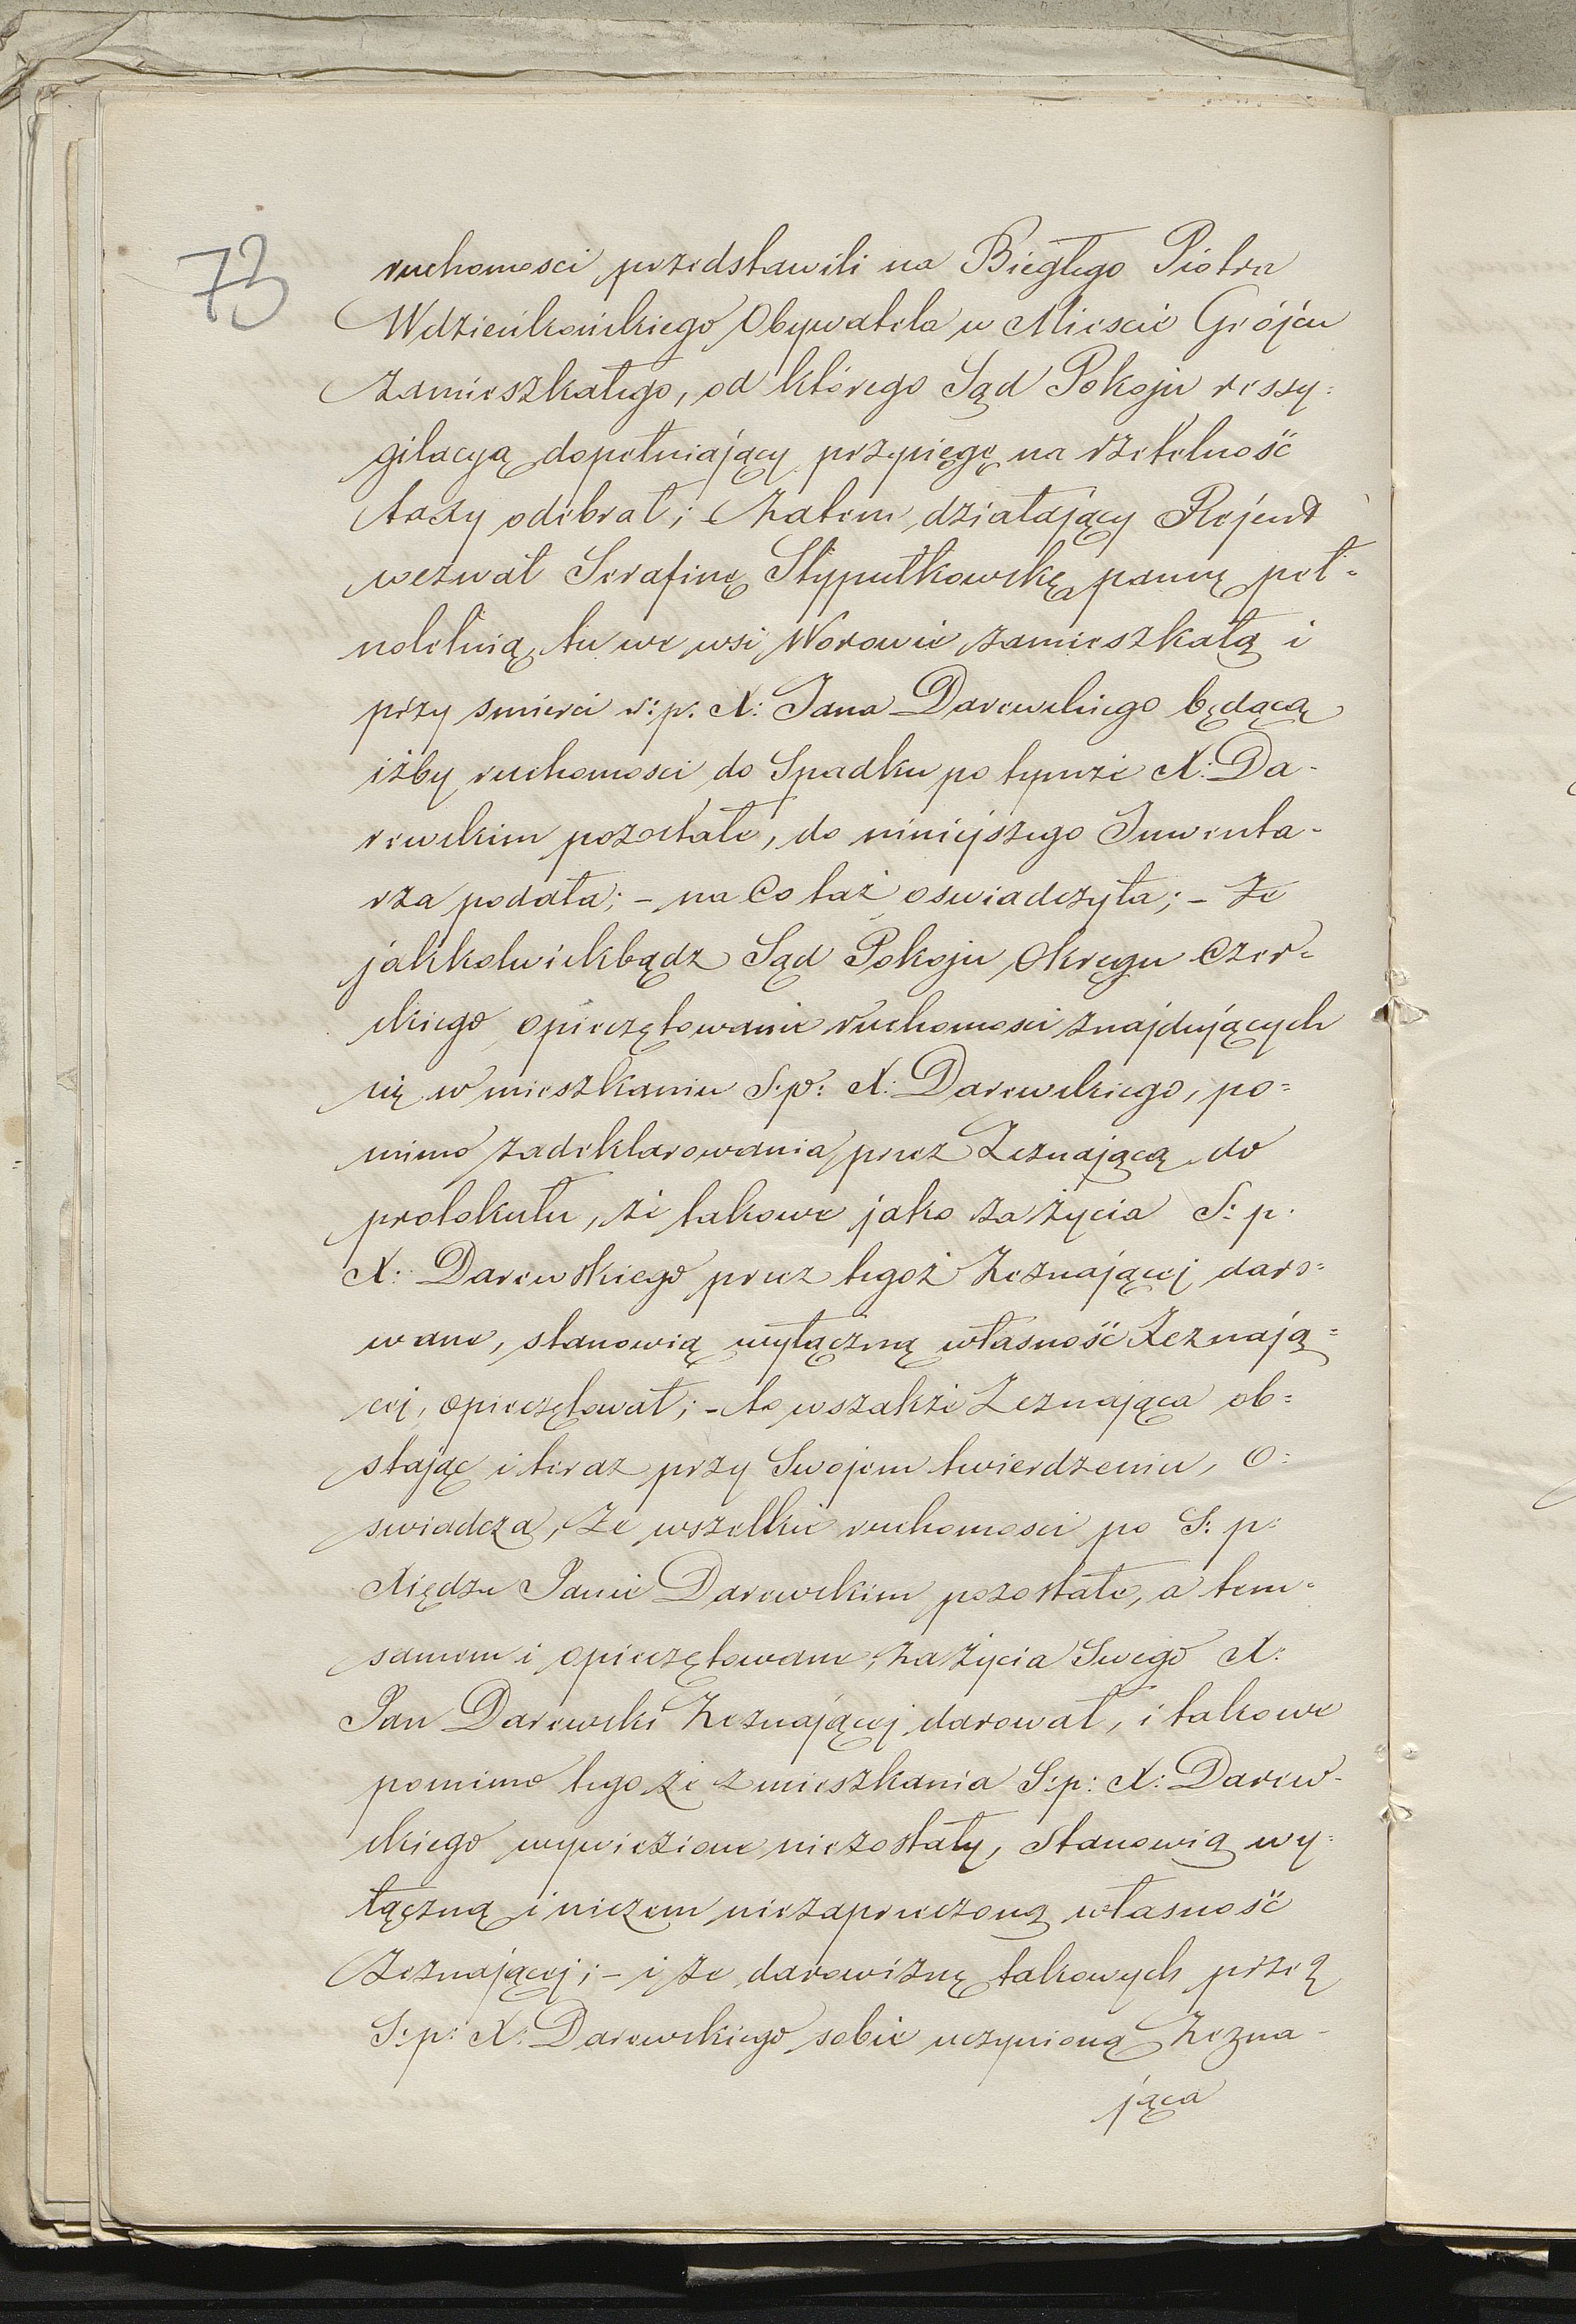 73
ruchomosci przedstawili na Biegłego Piotra
Wdzieńkońskiego Obywatela w Miescie Grójcu
zamieszkałego, od którego Sąd Pokoju ressy:
gilacyą dopełniający przysięgę na rzetelność
taxy odebrał; – Zatem działający Rejent
wezwał Serafinę Stypułkowską pannę peł-
noletnią, tu we wsi Worowie zamieszkałą i
przy smierci s: p. X: Jana Darewskiego będącą
iżby ruchomosci do Spadku po tymże X: Da-
rewskim pozostałe, do niniejszego Inwenta-
rza podała; – na Co taż oswiadczyła; – Że
jakkolwiekbądz Sąd Pokoju Okręgu Czer-
skiego opieczętowanie ruchomosci znajdujących
się w mieszkaniu S: p: X: Darewskiego, po=
mimo zadeklarowania przez Zeznającą do
protokułu, że takowe jako za życia S: p.
X: Darewskiego przez tegoż Zeznającej daro=
wane, stanowią wyłączną własność Zeznają=
cej, opieczętował; – to wszakże Zeznająca ob=
stając i teraz przy Swojem twierdzeniu, o:
swiadcza, że wszelkie ruchomosci po S: p:
Xiędzu Janie Darewskim pozostałe, a tem-
samem i opieczętowane, za życia Swego X:
Jan Darewski Zeznającej darował, i takowe
pomimo tego że z mieszkania S: p: X: Darew-
skiego wywiezione niezostały, Stanowią wy:
łączną i niczem niezaprzeczoną własność
Zeznającej; – i że darowiznę takowych przez
S: p: X: Darewskiego sobie uczynioną Zezna-
jąca